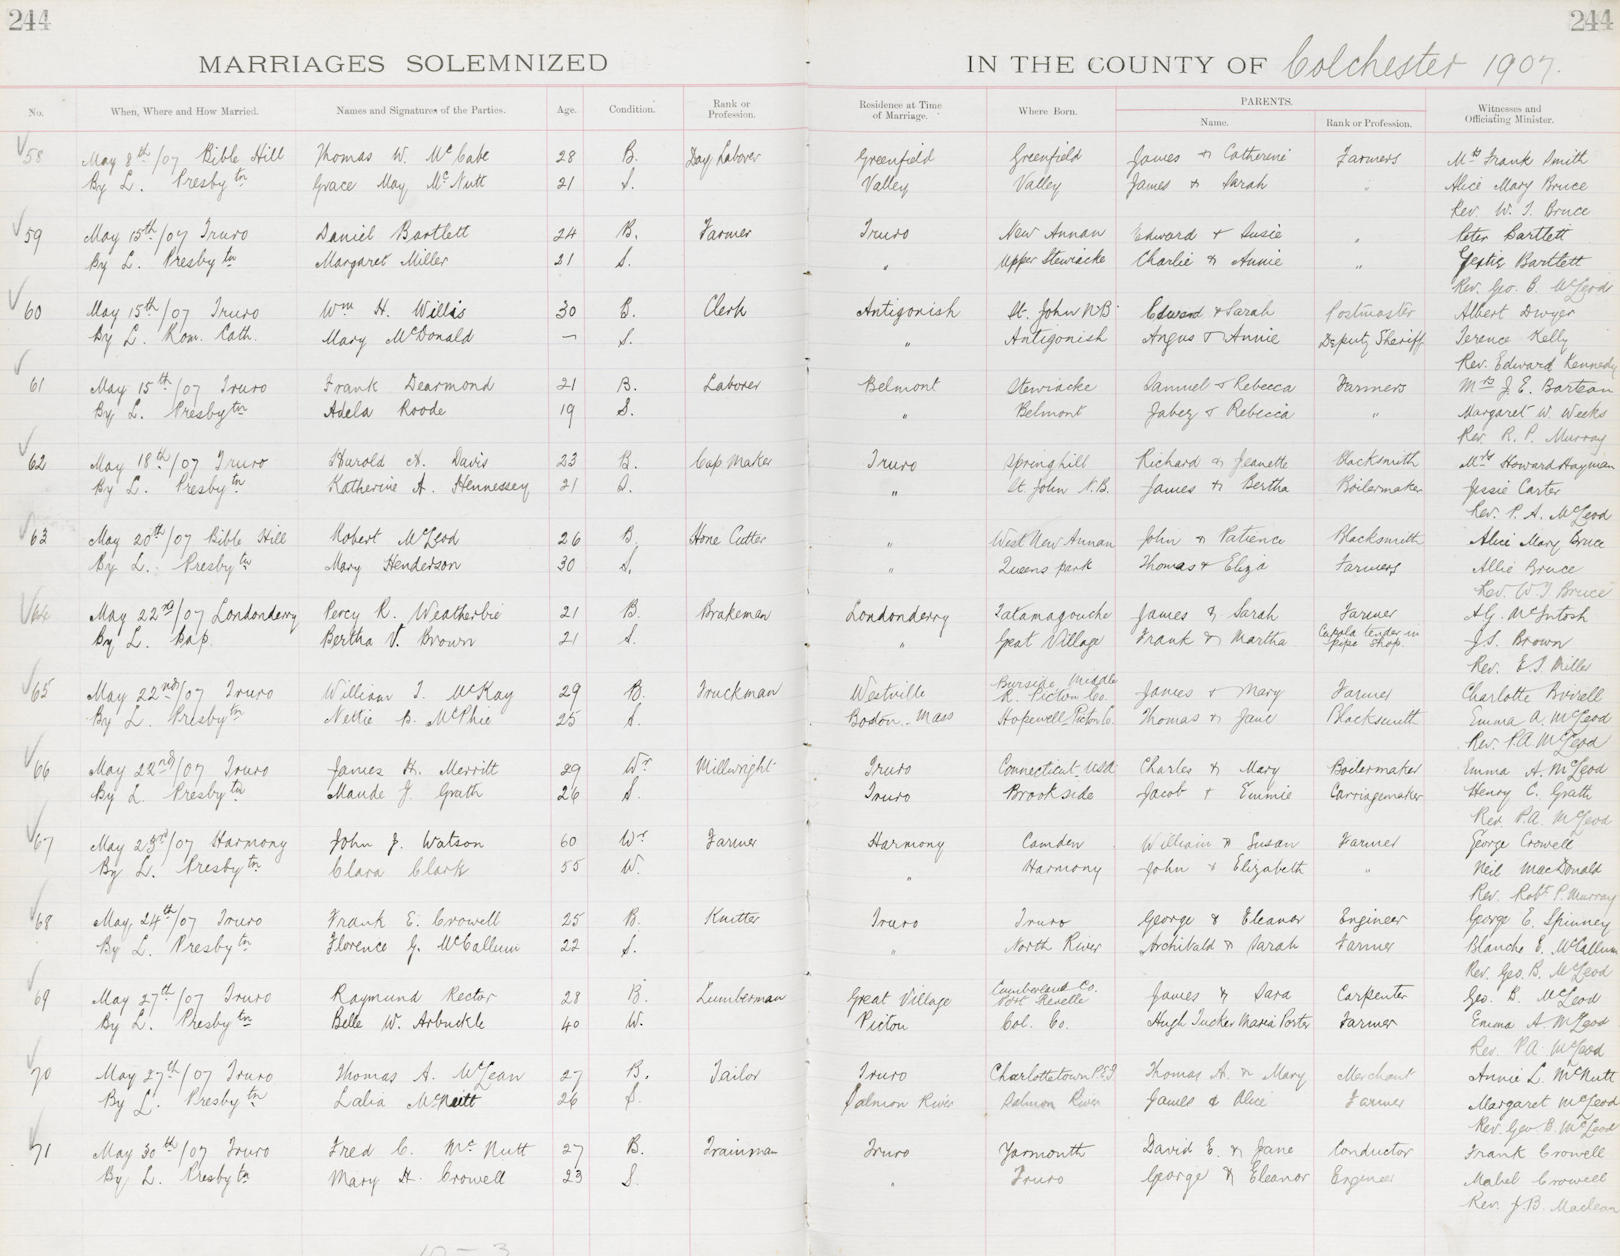 244
244
MARRIAGES SOLEMNIZED
IN THE COUNTY OF Colchester 1907.
No.
When, Where and How Married.
Names and Signatures of the Parties.
Age.
Condition.
Rank or Profession.
Residence at Time of Marriage.
Where Born.
PARENTS.
Name.
Rank or Profession.
Witnesses and Officiating Minister.
58 May 8th/07 Bible Hill Thomas W. McCabe 28 B. Day Laborer Greenfield Greenfield James & Catherine Farmers Mrs Frank Smith
By L. Presbytn Grace May McNutt 21 S. Valley Valley James & Sarah " Alice Mary Bruce
Rev. W. T. Bruce
59 May 15th/07 Truro Daniel Bartlett 24 B. Farmer Truro New Annan Edward & Susie " Peter Bartlett
By L. Presbytn Margaret Miller 21 S. " Upper Stewiacke Charlie & Annie " Bartlett
Rev. Geo. B. McLeod
60 May 15th/07 Truro Wm H. Willis 30 B. Clerk Antigonish St. John N.B. Edward & Sarah Postmaster Albert Dwyer
By L. Rom. Cath. Mary McDonald — S. " Antigonish Angus & Annie Deputy Sheriff Terence Kelly
Rev. Edward Kennedy
61 May 15th/07 Truro Frank Dearmond 21 B. Laborer Belmont Stewiacke Samuel & Rebecca Farmers Mrs J. E. Barteau
By L. Presbytn Adela Roode 19 S. " Belmont Jabez & Rebecca " Margaret W. Weeks
Rev. R. P. Murray
62 May 18th/07 Truro Harold A. Davis 23 B. Cap Maker Truro Springhill Richard & Jeanette Blacksmith Mrs Howard Hayman
By L. Presbytn Katherine A. Hennessey 21 S. " St. John N.B. James & Bertha Boilermaker Jessie Carter
Rev. P. A. McLeod
63 May 20th/07 Bible Hill Robert McLeod 26 B. Stone Cutter " West New Annan John & Patience Blacksmith Alice Mary Bruce
By L. Presbytn Mary Henderson 30 S. " Queens park Thomas & Eliza Farmers Allie Bruce
Rev. W. T. Bruce
64 May 22nd/07 Londonderry Percy R. Weatherbie 21 B. Brakeman Londonderry Tatamagouche James & Sarah Farmer A.G. McIntosh
By L. Bap. Bertha V. Brown 21 S. " Great Village Frank & Martha Cupola tender in pipe shop. J.S. Brown
Rev. E.S. Miller
65 May 22nd/07 Truro William T. McKay 29 B. Truckman Westville Burside Middle R. Pictou Co. James & Mary Farmer Charlotte
By L. Presbytn Nettie B. McPhie 25 S. Boston Mass Hopewell Pictou Co. Thomas & Jane Blacksmith Emma A. McLeod
Rev. P.A. McLeod
66 May 22nd/07 Truro James H. Merritt 29 Wr Millwright Truro Connecticut USA Charles & Mary Boilermaker Emma A. McLeod
By L. Presbytn Maude J. Grath 26 S. Truro Brookside Jacob & Emmie Carriagemaker Henry C. Grath
Rev. P.A. McLeod
67 May 23rd/07 Harmony John J. Watson 60 Wr Farmer Harmony Camden William & Susan Farmer George Crowell
By L. Presbytn Clara Clark 55 W. " Harmony John & Elizabeth " Neil MacDonald
Rev. Robt P. Murray
68 May 24th/07 Truro Frank E. Crowell 25 B. Knitter Truro Truro George & Eleanor Engineer George E. Spinney
By L. Presbytn Florence G. McCallum 22 S. " North River Archibald & Sarah Farmer Blanche E. McCallum
Rev. Geo. B. McLeod
69 May 27th/07 Truro Raymund Rector 28 B. Lumberman Great Village Cumberland Co. Port Grevelle James & Sara Carpenter Geo. B. McLeod
By L. Presbytn Belle W. Arbuckle 40 W. Pictou Col. Co. Hugh Tucker Maria Porter Farmer Emma A. McLeod
Rev. P.A. McLeod
70 May 27th/07 Truro Thomas A. McLean 27 B. Tailor Truro Charlottetown P.E.I. Thomas A. & Mary Merchant Annie L. McNutt
By L. Presbytn Lalia McNutt 26 S. Salmon River Salmon River James & Alice Farmer Margaret McLeod
Rev. Geo B. McLeod
71 May 30th/07 Truro Fred C. McNutt 27 B. Trainman Truro Yarmouth David E. & Jane Conductor Frank Crowell
By L. Presbytn Mary H. Crowell 23 S. " Truro George & Eleanor Engineer Mabel Crowell
Rev. J.B. Maclean